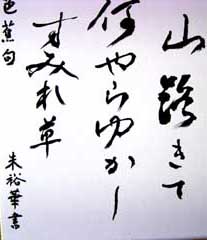 山路きて
何やらゆかし
すみれ草
芭蕉句
朱裕華書